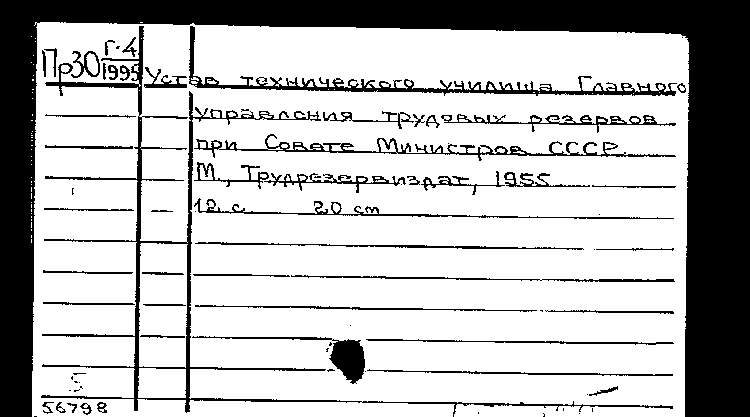 Пр30 Г-4
1995 Устав технического училища Главного
управления трудовых резервов
при Совете Министров СССР.
М., Трудрезервиздат, 1955
12 с. 20 cm
5
56798